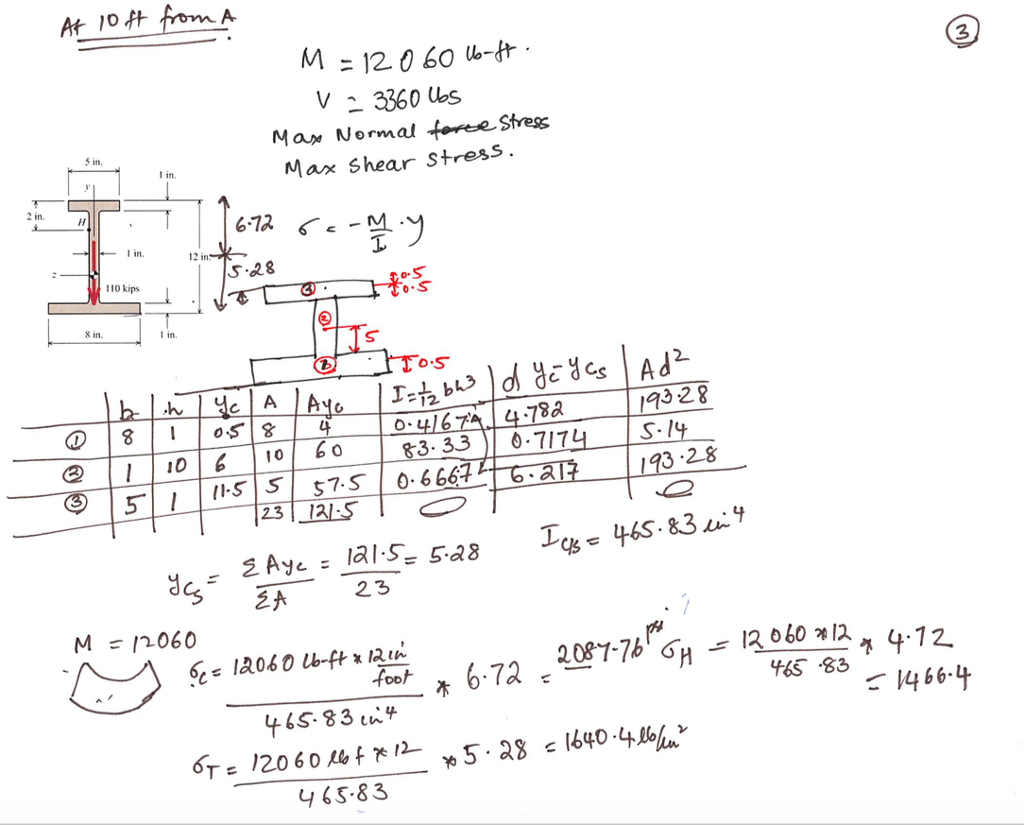 At 10 ft from A
3
M = 12060 lb-ft.
V = 3360 lbs
Max Normal force Stress
Max Shear Stress.
5 in.
1 in.
y
2 in.
H
6.72
σ = - M/I . y
1 in.
12 in.
5.28
z
110 kips
③
0.5
0.5
②
5
8 in.
1 in.
①
0.5
b h yc A Ayc I = 1/12 bh3 d yc-ycs Ad2
① 8 1 0.5 8 4 0.4167 4.782 193.28
② 1 10 6 10 60 83.33 0.7174 5.14
③ 5 1 11.5 5 57.5 0.6667 6.217 193.28
23 121.5
ycs = ΣAyc/ΣA = 121.5/23 = 5.28
Ics = 465.83 in4
M = 12060
σc = 12060 lb-ft * 12 in/foot / 465.83 in4 * 6.72 = 2087.76 psi
σH = 12060 * 12 / 465.83 * 4.72 = 1466.4
σT = 12060 lbf * 12 / 465.83 * 5.28 = 1640.4 lb/in2